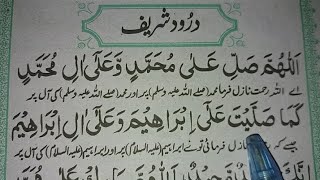 درود شریف
اَللّٰهُمَّ صَلِّ عَلٰی مُحَمَّدٍ وَّعَلٰٓی اٰلِ مُحَمَّدٍ
اے اللہ رحمت نازل فرما محمد (صلی اللہ علیہ وسلم) پر اور محمد (صلی اللہ علیہ وسلم) کی آل پر
كَمَا صَلَّيْتَ عَلٰٓی اِبْرَاهِيْمَ وَعَلٰٓی اٰلِ اِبْرَاهِيْمَ
جیسے کہ رحمت نازل فرمائی تو نے ابراہیم (علیہ السلام) پر اور ابراہیم (علیہ السلام) کی آل پر